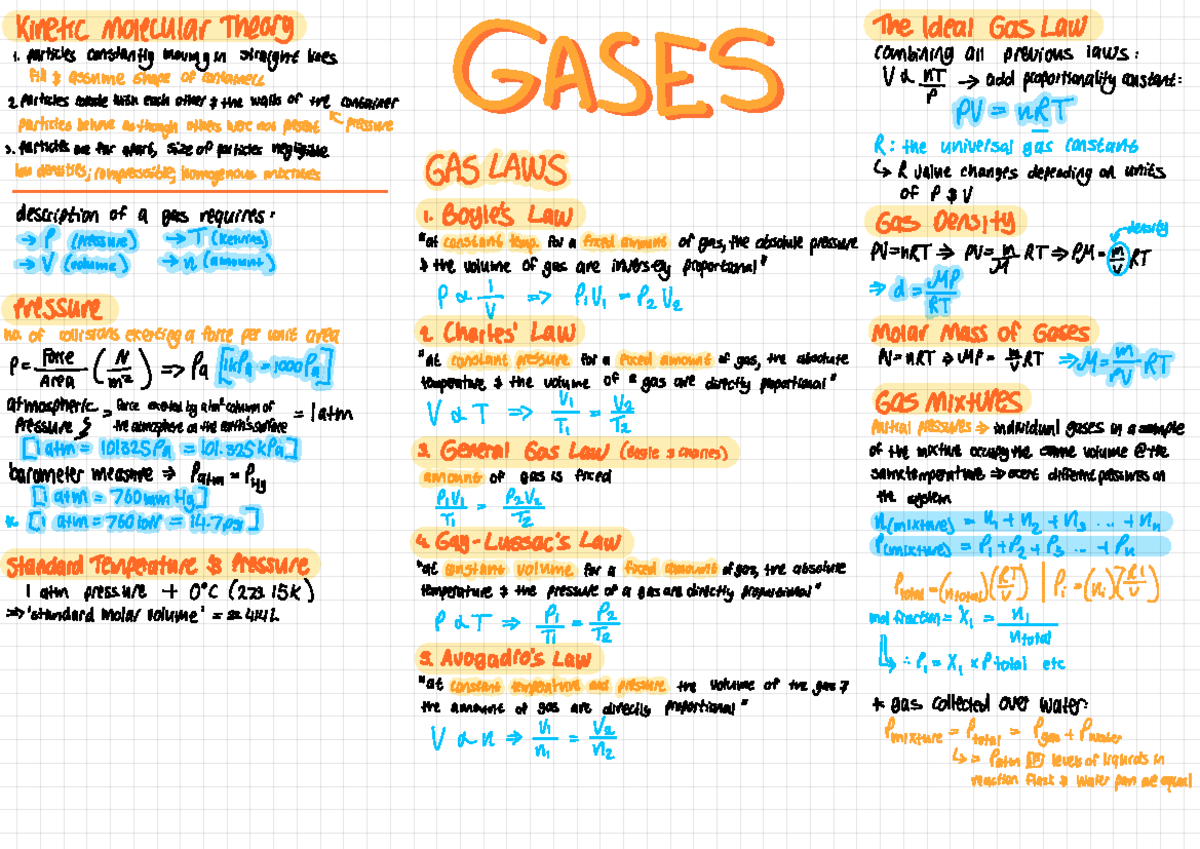 Kinetic Molecular Theory
1. particles constantly moving in straight lines
fill & assume shape of containers
2. particles collide with each other & the walls of the container
particles behave as though others were not present ↖ pressure
3. particles are far apart, size of particles negligible
low densities; compressible; homogenous mixtures
description of a gas requires:
→ P (pressure) → T (kelvins)
→ V (volume) → n (amount)
Pressure
no. of collisions exerting a force per unit area
P = Force/Area (N/m²) => Pa [1kPa = 1000Pa]
atmospheric pressure = force exerted by a 1m² column of the atmosphere on the earth's surface = 1 atm
[1 atm = 101325Pa = 101.325kPa]
barometer measure => Patm = PHg
[1 atm = 760mm Hg]
* [1 atm = 760 torr = 14.7psi]
Standard Temperature & Pressure
1 atm pressure + 0°C (273.15K)
=> 'standard molar volume' = 22.414L
GASES
GAS LAWS
1. Boyle's Law
"at constant temp. for a fixed amount of gas, the absolute pressure
& the volume of gas are inversely proportional"
P ∝ 1/V => P₁V₁ = P₂V₂
2. Charles' Law
"at constant pressure for a fixed amount of gas, the absolute
temperature & the volume of a gas are directly proportional"
V ∝ T => V₁/T₁ = V₂/T₂
3. General Gas Law (Boyle & Charles)
amount of gas is fixed
P₁V₁/T₁ = P₂V₂/T₂
4. Gay-Lussac's Law
"at constant volume for a fixed amount of gas, the absolute
temperature & the pressure of a gas are directly proportional"
P ∝ T => P₁/T₁ = P₂/T₂
5. Avogadro's Law
"at constant temperature and pressure the volume of the gas &
the amount of gas are directly proportional"
V ∝ n => V₁/n₁ = V₂/n₂
The Ideal Gas Law
combining all previous laws:
V ∝ nT/P → add proportionality constant:
PV = nRT
R: the universal gas constant
↳ R value changes depending on units
of P & V
Gas Density
density
PV=nRT => PV= m/M RT => PM = m/V RT
=> d = MP/RT
Molar Mass of Gases
PV=nRT => MP = m/V RT => M = m/PV RT
Gas Mixtures
partial pressures => individual gases in a sample
of the mixture occupy the same volume @ the
same temperature => exert different pressures on
the system
n(mixture) = n₁ + n₂ + n₃ ... + nₙ
P(mixture) = P₁ + P₂ + P₃ ... + Pₙ
Ptotal = (ntotal)(RT/V) | Pi = (ni)(RT/V)
mol fraction = X₁ = n₁/ntotal
↳ ∴ P₁ = X₁ × Ptotal etc
* gas collected over water:
Pmixture = Ptotal = Pgas + Pwater
↳ = Patm IF levels of liquids in
reaction flask & water pan are equal